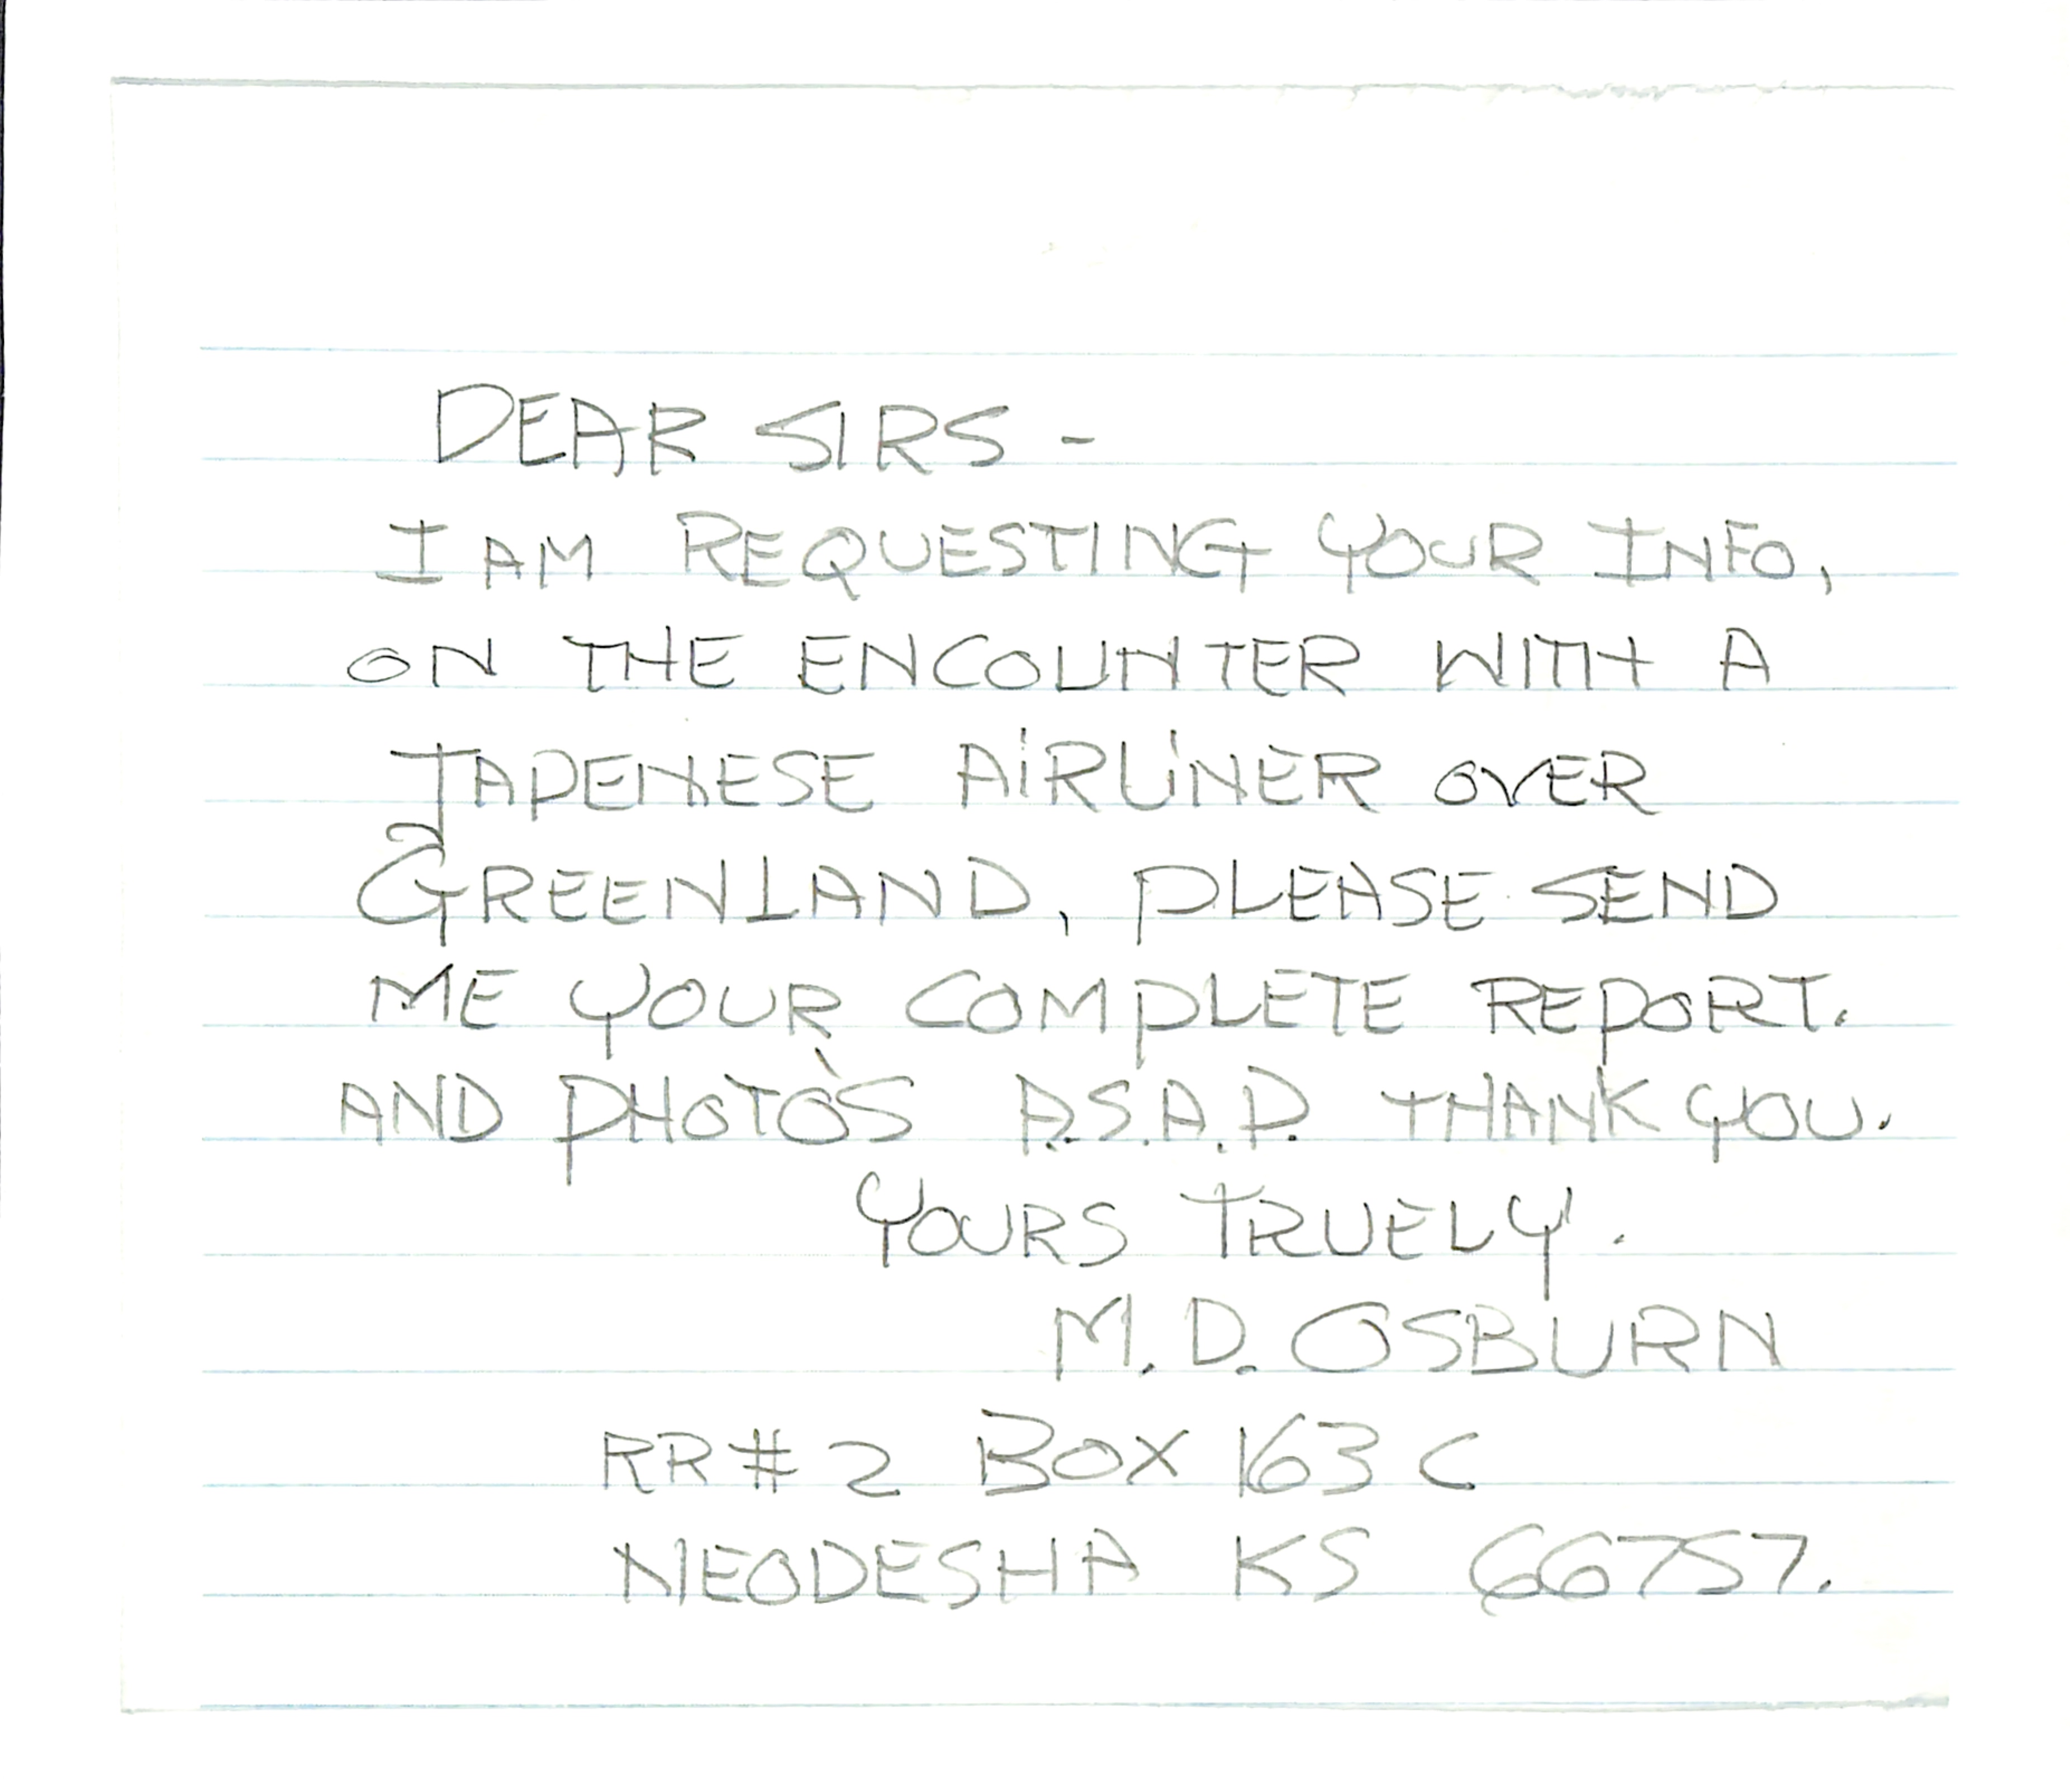 DEAR SIRS -
I AM REQUESTING YOUR INFO,
ON THE ENCOUNTER WITH A
JAPENESE AiRLiNER OVER
GREENLAND, PLEASE SEND
ME YOUR COMPLETE REPORT.
AND PHOTO'S A.S.A.P. THANK YOU.
YOURS TRUELY.
M. D. OSBURN
RR # 2 BOX 163 C
NEODESHA KS 66757.